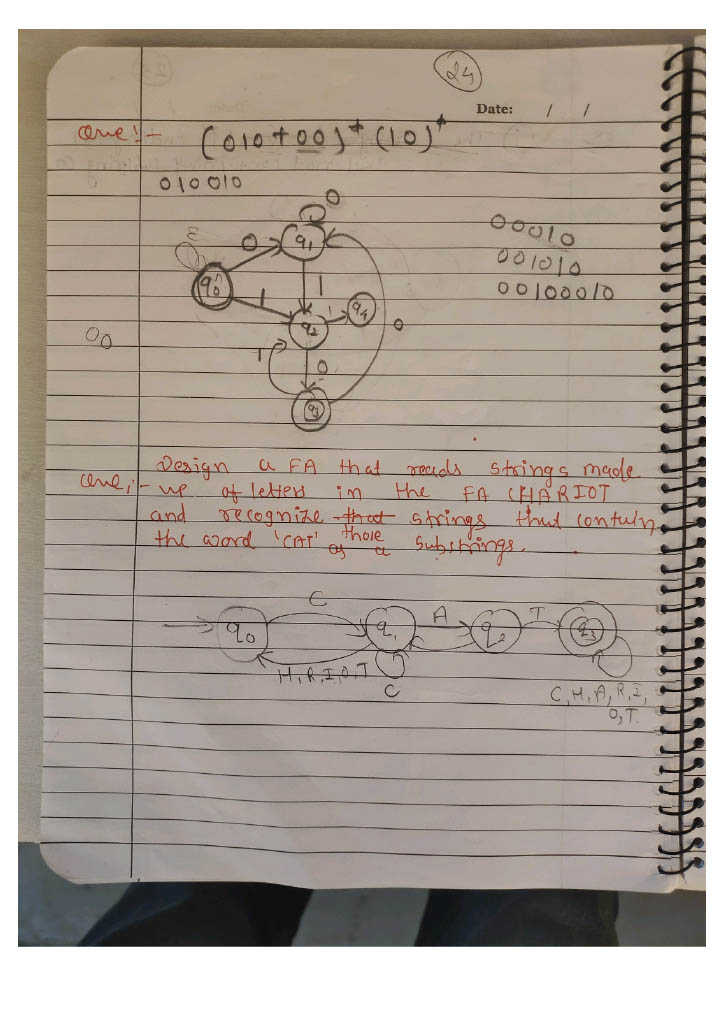 24
Date: / /
Que:- (010+00)* (10)*
010010
0
ε 0 q1 00010
q0 1 001010
1 q4 00100010
q2 1
00 0
1 0
q3
Design a FA that reads strings made
Que:- up of letters in the FA CHARIOT
and recognize that strings that contain
the word 'CAT' those as a substrings.
C
q0 q1 A q2 T q3
H,R,I,O,T
C C,H,A,R,I,
O,T